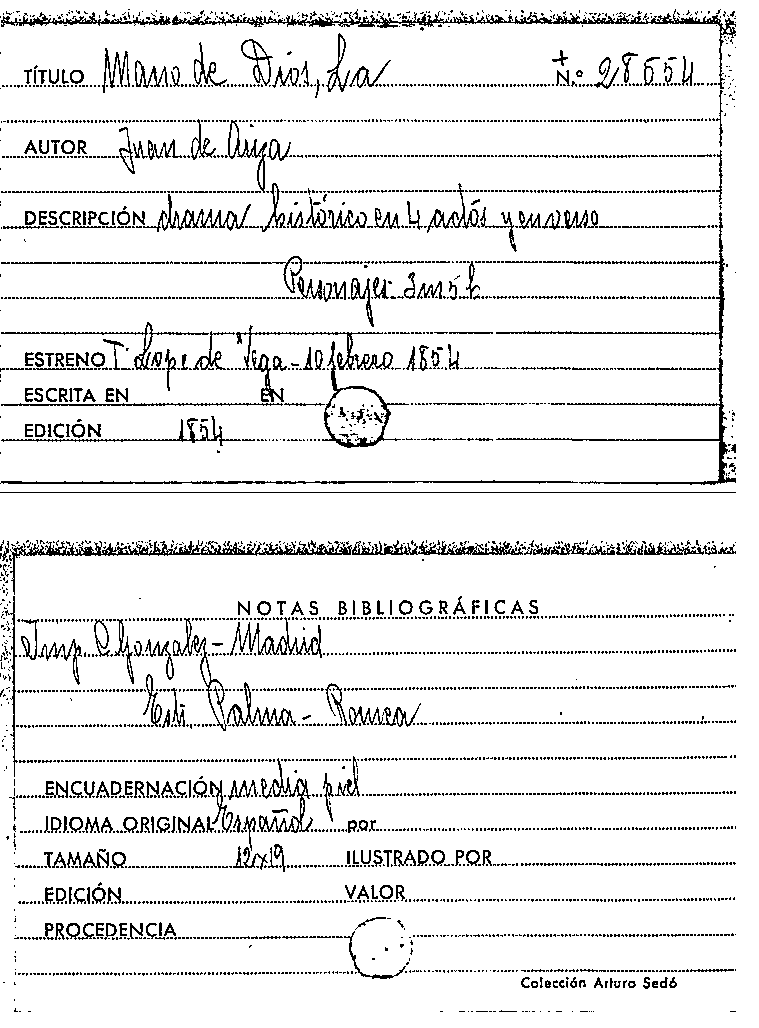 TÍTULO Mano de Dios, La + N.º 28554
AUTOR Juan de Ariza
DESCRIPCIÓN drama histórico en 4 actos y en verso
Personajes 3 m 5 h
ESTRENO T. Lope de Vega - 10 febrero 1854
ESCRITA EN EN
EDICIÓN 1854
NOTAS BIBLIOGRÁFICAS
Imp. C. Gonzalez - Madrid
Palma - Romea
ENCUADERNACIÓN media piel
IDIOMA ORIGINAL Español por
TAMAÑO 12x19 ILUSTRADO POR
EDICIÓN VALOR
PROCEDENCIA
Colección Arturo Sedó